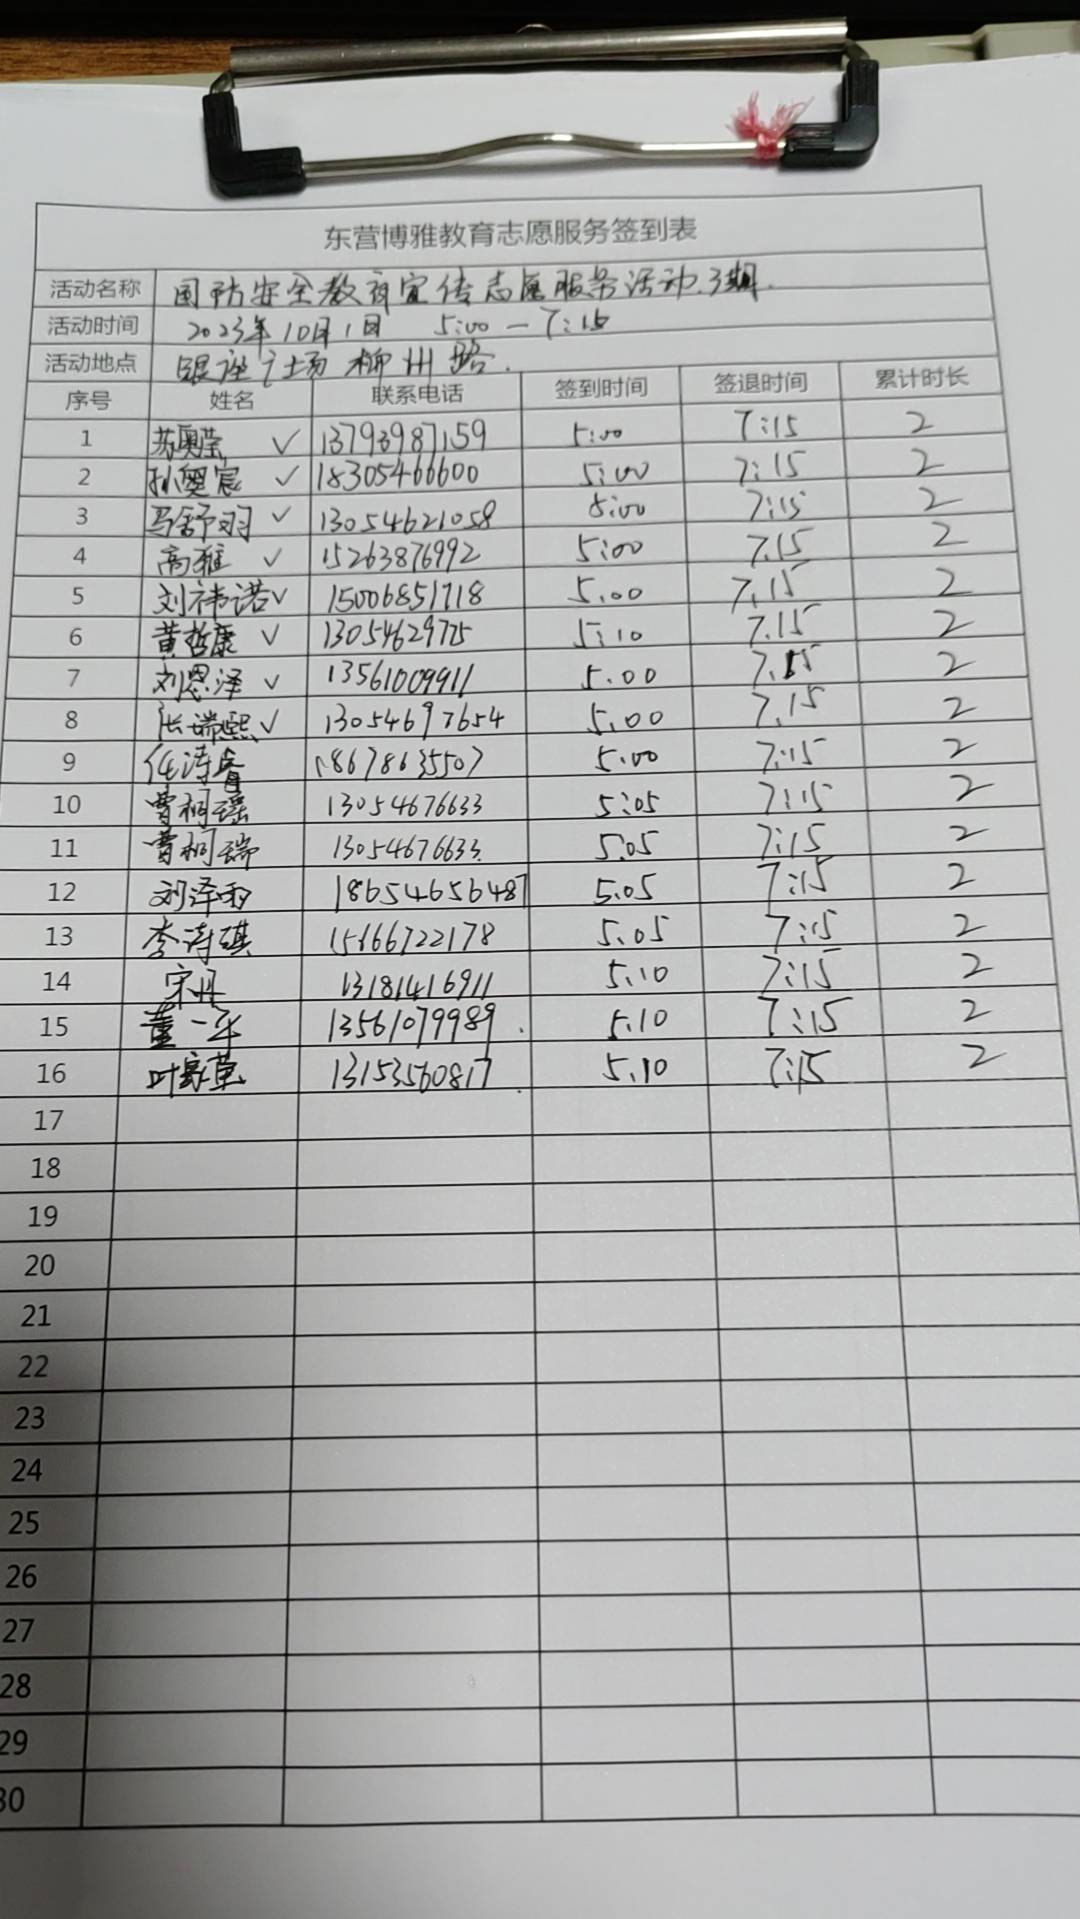 东营博雅教育志愿服务签到表
活动名称 国防安全教育宣传志愿服务活动.3期.
活动时间 2023年10月1日 5:00—7:15
活动地点 银座广场 柳州路.
序号 姓名 联系电话 签到时间 签退时间 累计时长
1 苏奥莹 ✓ 13793987159 5:00 7:15 2
2 孙奥宸 ✓ 18305466600 5:00 7:15 2
3 马舒羽 ✓ 13054621058 5:00 7:15 2
4 高雅 ✓ 15263876992 5:00 7.15 2
5 刘祎诺 ✓ 15006851718 5.00 7.15 2
6 黄哲康 ✓ 13054629775 5:10 7.15 2
7 刘恩泽 ✓ 13561009911 5.00 7.15 2
8 张瑞熙 ✓ 13054697654 5.00 7.15 2
9 任涛睿 18678635507 5.00 7:15 2
10 曹桐瑶 13054676633 5:05 7:15 2
11 曹桐瑞 13054676633. 5.05 7:15 2
12 刘泽雨 18654656487 5.05 7:15 2
13 李涛琪 15166722178 5.05 7:15 2
14 宋丹 13181416911 5.10 7:15 2
15 董一 13561079989. 5.10 7:15 2
16 叶家 13153560817. 5.10 7:15 2
17
18
19
20
21
22
23
24
25
26
27
28
29
30